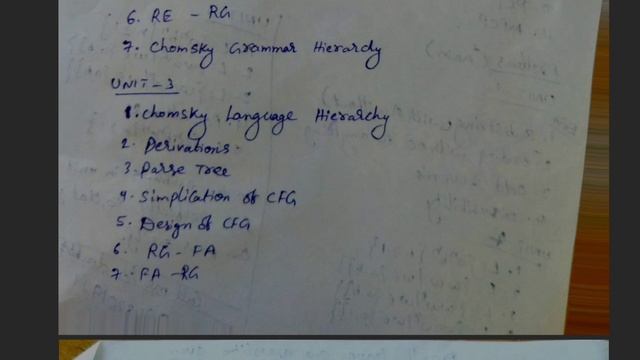 6. RE - RG
7. Chomsky Grammar Hierarchy
UNIT-3
1. Chomsky Language Hierarchy
2. Derivations.
3. Parse Tree
4. Simplication of CFG
5. Design of CFG
6. RG - FA
7. FA - RG